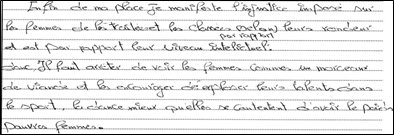 Enfin de ma place je manifeste l'injustice imposé sur
les femmes de les traitées et les classees selon leurs rondeur
par rapport
et est par rapport leur niveau intelectuel.
donc Il faut arrêter de voir les femmes commes un morceaux
de viande et les encourager d'exploser leurs talents dans
le sport, la dance mieux qu'elles se contentent d'avoir le poids
d'autres femmes.